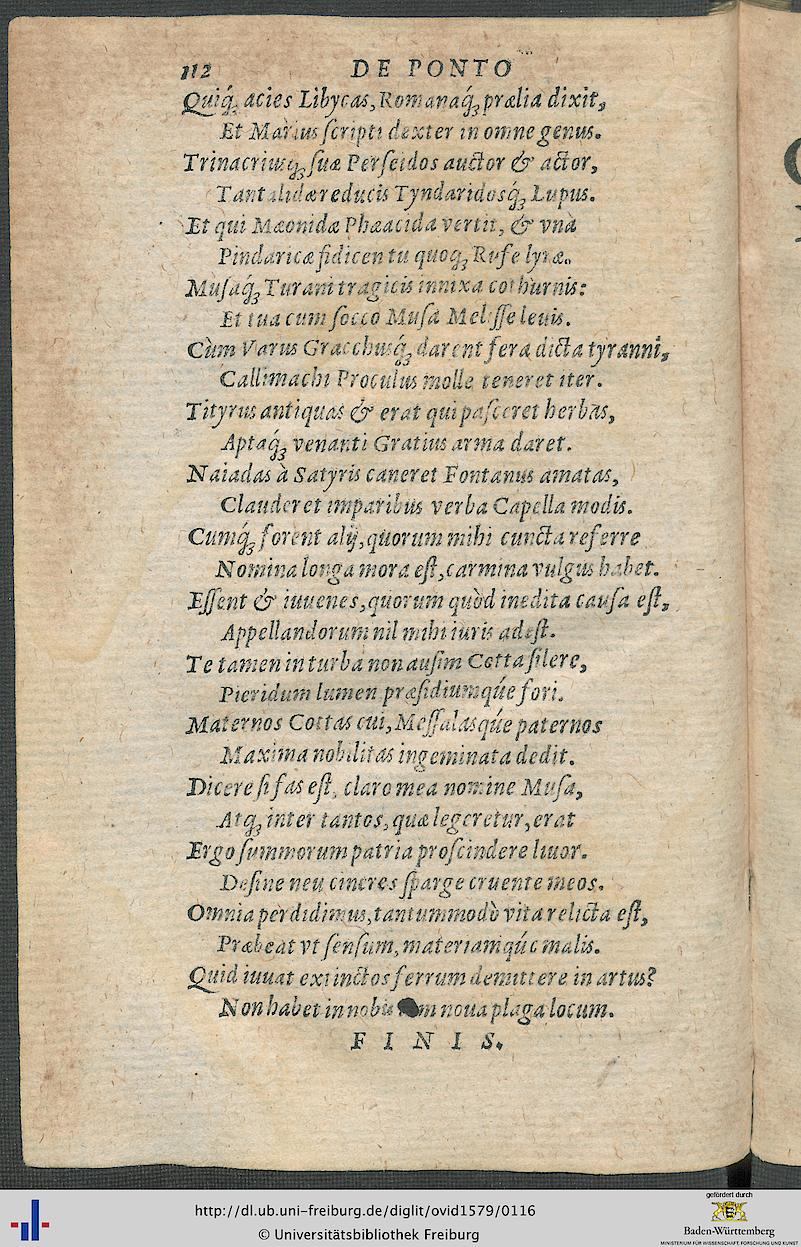 112 DE PONTO
Quiq́ꝫ acies Libycas, Romanaq́ꝫ prælia dixit,
Et Marius ſcripti dexter in omne genus.
Trinacriusqꝫ ſuæ Perſeidos auctor & actor,
Tantalidæ reducis Tyndaridosq́ꝫ Lupus.
Et qui Mæonidæ Phæacida vertit, & vnà
Pindaricæ fidicen tu quoqꝫ Rufe lyræ.
Muſaq́ꝫ Turani tragicis innixa cothurnis:
Et tua cum ſocco Muſa Meliſſe leuis.
Cùm Varus Gracchusq́ꝫ darent fera dicta tyranni,
Callimachi Proculus molle teneret iter.
Tityrus antiquas & erat qui paſceret herbas,
Aptaq́ꝫ venanti Gratius arma daret.
Naiadas à Satyris caneret Fontanus amatas,
Clauderet imparibus verba Capella modis.
Cumq́ꝫ forent alij, quorum mihi cuncta referre
Nomina longa mora eſt, carmina vulgus habet.
Eſſent & iuuenes, quorum quòd inedita cauſa eſt,
Appellandorum nil mihi iuris adeſt.
Te tamen in turba non auſim Cotta ſilere,
Pieridum lumen præſidiumqúe fori.
Maternos Cottas cui, Meſſalasqúe paternos
Maxima nobilitas ingeminata dedit.
Dicere ſi fas eſt, claro mea nomine Muſa,
Atqꝫ inter tantos, quæ legeretur, erat
Ergo ſummorum patria proſcindere liuor.
Deſine neu cineres ſparge cruente meos.
Omnia perdidimus, tantummodò vita relicta eſt,
Præbeat vt ſenſum, materiamqúe malis.
Quid iuuat extinctos ferrum demittere in artus?
Non habet in nobis noua plaga locum.
F I N I S.
http://dl.ub.uni-freiburg.de/diglit/ovid1579/0116
© Universitätsbibliothek Freiburg
gefördert durch
Baden-Württemberg
MINISTERIUM FÜR WISSENSCHAFT, FORSCHUNG UND KUNST